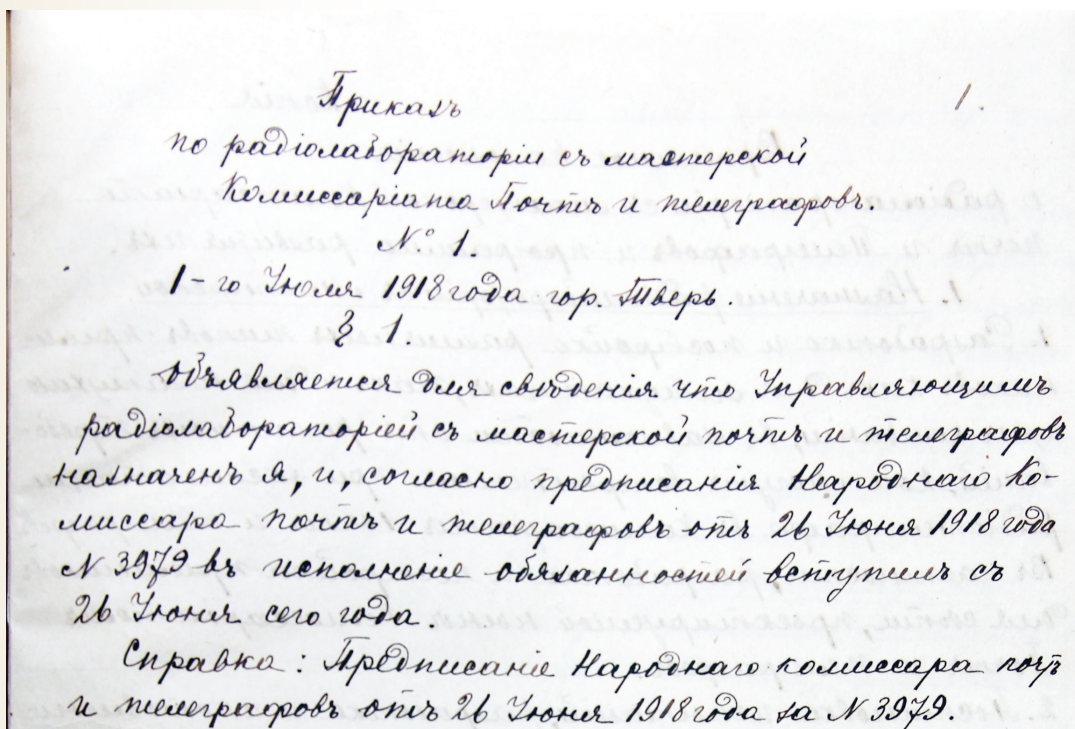 Приказъ
1.
по радіолабораторіи съ мастерской
Комиссаріата Почтъ и телеграфовъ.
№ 1.
1-го Іюля 1918 года гор. Тверь.
§ 1.
Объявляется для свѣдѣнія что Управляющимъ
радіолабораторіей съ мастерской почтъ и телеграфовъ
назначенъ я, и, согласно предписанія Народнаго Ко-
миссара почтъ и телеграфовъ отъ 26 Іюня 1918 года
№ 3979 въ исполненіе обязанностей вступилъ съ
26 Іюня сего года.
Справка: Предписаніе Народнаго комиссара почтъ
и телеграфовъ отъ 26 Іюня 1918 года за № 3979.